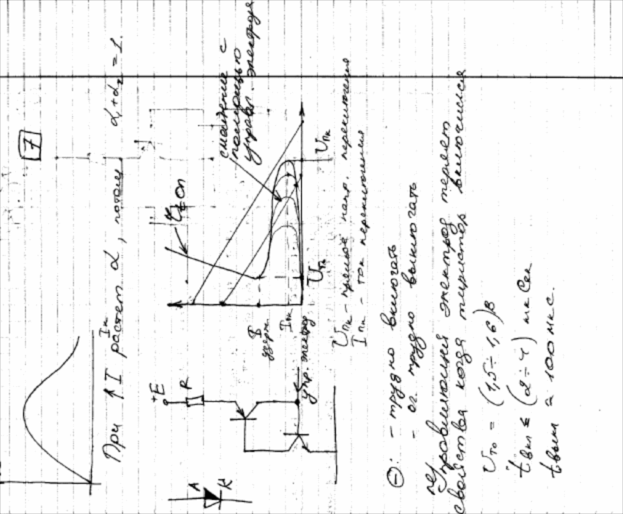 7
При ↑ I растет α, потом α₁+α₂=1.
Iк
+E
R
A
K
упр. электрод
I удерж.
Iпк
Uпк
смещение с
помощью
управл. электрода
Uпк – прямое напр. переключения
Iпк – ток переключения
⊖: – трудно включать
– ог. трудно выключать
управляющий электрод теряет
свойства когда тиристор включился
Uто = (1,5÷1,6) В
tвкл ≤ (2÷4) мкСек
tвыкл ≈ 100 мкс.